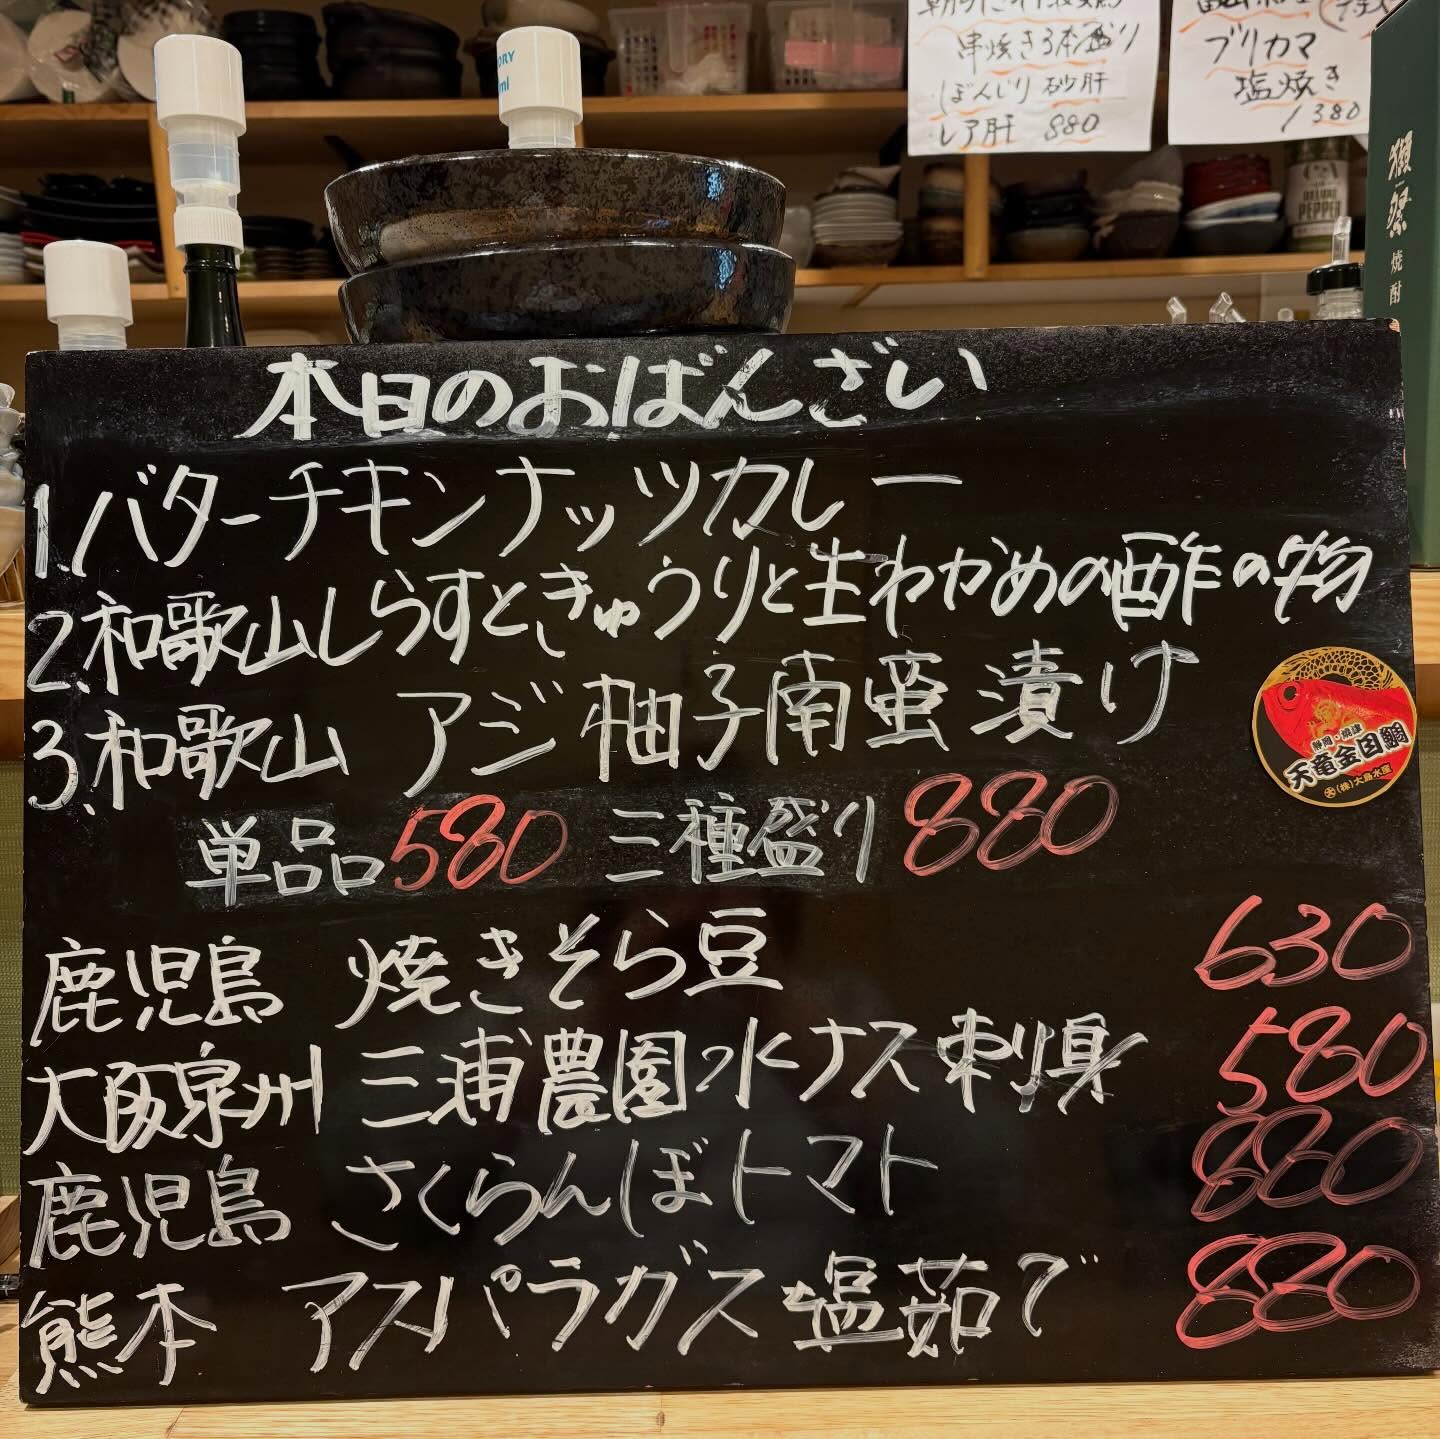 串焼き3本盛り
・ぼんじり 砂肝
・レア肝 880
ブリカマ
塩焼き
1380
獺祭
焼酎
PEPPER
本日のおばんざい
1.バターチキンナッツカレー
2.和歌山しらすときゅうりと生わかめの酢の物
3.和歌山 アジ柚子南蛮漬け
単品580 三種盛り880
静岡・焼津
天竜金目鯛
(株)大島水産
鹿児島 焼きそら豆 630
大阪泉州 三浦農園水ナス刺身 580
鹿児島 さくらんぼトマト 880
熊本 アスパラガス塩茹で 880